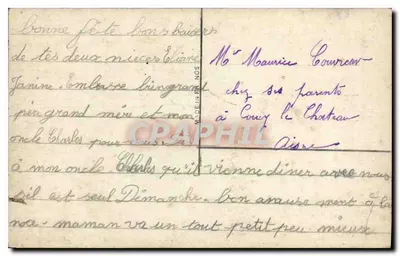 bonne fête bons baisers
de tes deux nieces Eliane
Janine. Embrasse bien grand
père grand mère et mon
oncle Charles pour nous
à mon oncle Charles qu'il vienne diner avec nous
s'il est seul Dimanche. bon amusement à la
noce - maman va un tout petit peu mieux
Mr Maurice
chez ses parents
à Coucy le Chateau
Aisne
CPARAMA.COM